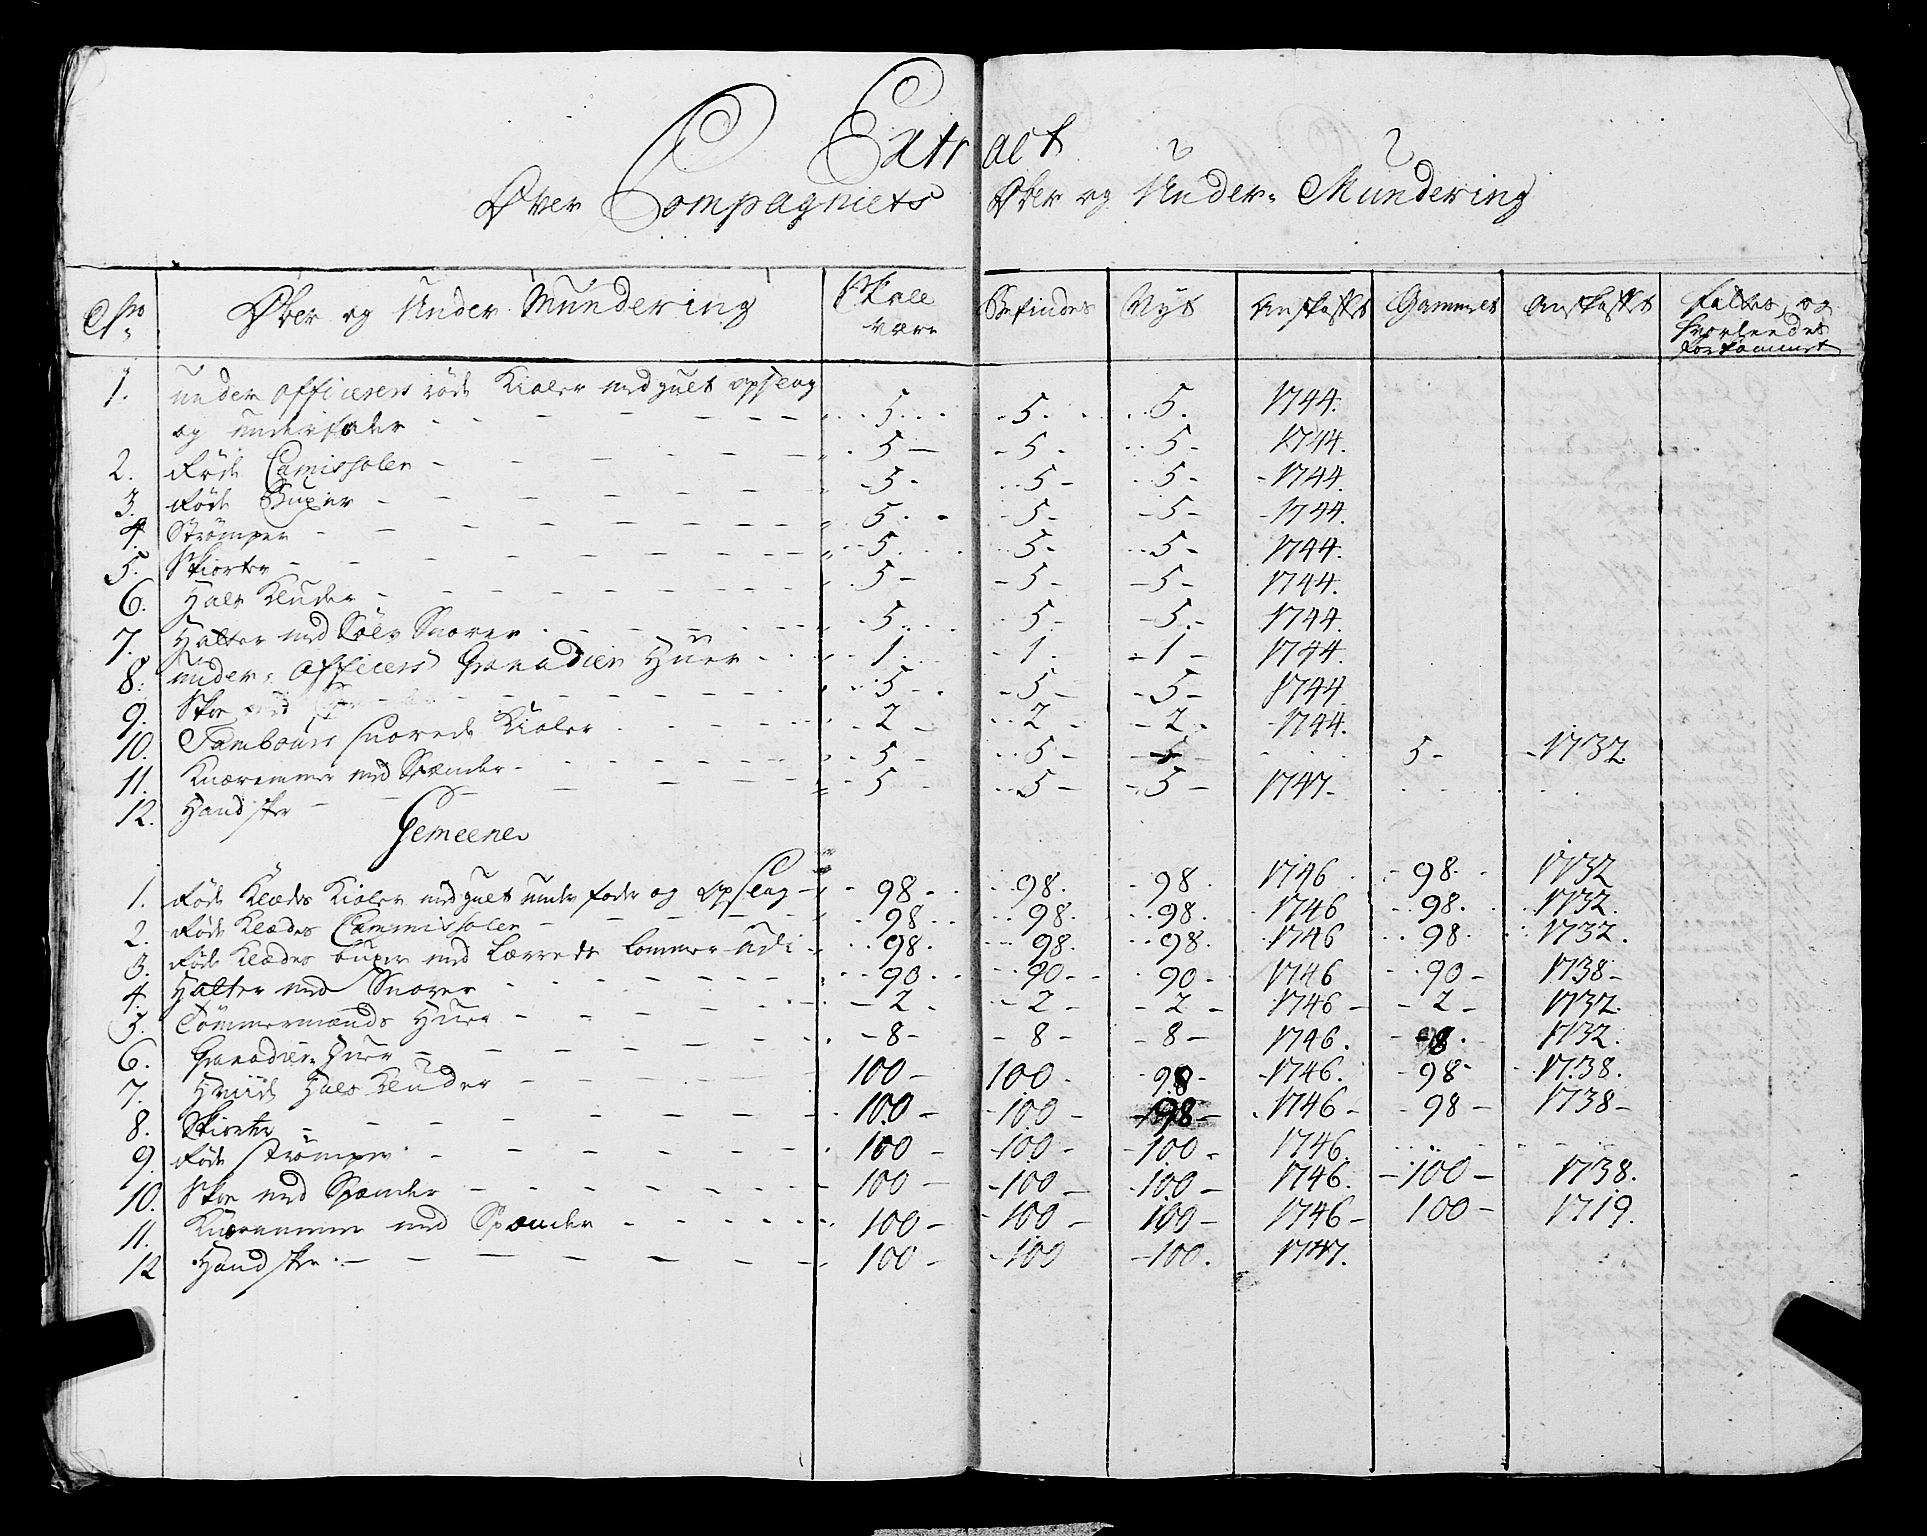 Extract
Over Compagniets Ober og Under Mundering
No Ober og Under Mundering Skall være Befindes Nyt Anskaffet Gammelt Anskaffet fattes og hvorleedes forkommet
1. under officerers röde Kioler med gult opslag
og underfoder 5 5 5 1744.
2. Röde Camissoler 5 5 5 1744.
3. Röde Buxer 5 5 5 1744.
4. Strömper 5 5 5 1744.
5. Skiorter 5 5 5 1744.
6. Hals Kluder 5 5 5 1744.
7. Hatter med Sölv Snorer 5 5 5 1744.
8. under officers Granadier Huer 1 1 1 1744.
9. Skoe med 5 5 5 1744
10. Tambours snorede Kioler 2 2 2 1744.
11. Knæremmer med Spænder 5 5 5 5 1732.
12. Handsker 5 5 5 1747
Gemeene
1. Röde Klædes Kioler med gult under foder og opslag 98 98. 98. 1746 98. 1732
2. Röde Klædes Cammissoler 98 98. 98. 1746 98. 1732.
3. Röde Klædes buxer med Lærreds Lommer udi 98. 98. 98. 1746 98. 1732.
4. Hatter med Snorer 90 90 90 1746 90 1738
5. Tömmermænds Huer 2 2 2 1746 2 1732.
6. Granadier Huer 8 8 8 1746. 8. 1732.
7. Hviide Hals Kluder 100 100 98 1746. 98 1738.
8. Skiorter 100 100 98 1746 98 1738
9. Röde strömper 100 100 100 1746.
10. Skoe med Spænder 100 100 100 1746. 100 1738.
11. Knæremmer med Spænder 100 100 100 1746 100 1719.
12 Handsker 100 100 100. 1747.